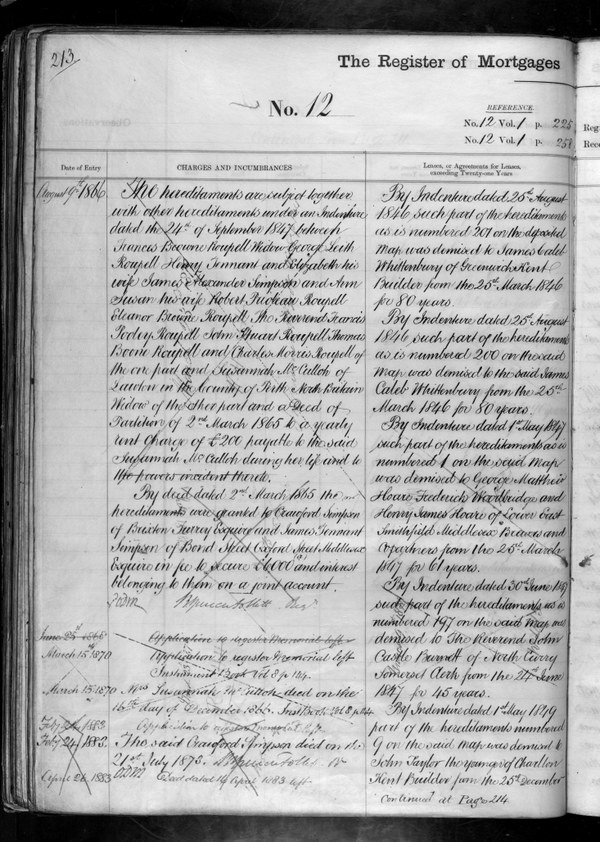 213
The Register of Mortgages
No. 12
REFERENCE.
No. 12 Vol. 1 p. 225
No. 12 Vol. 1 p. 25
Date of Entry
CHARGES AND INCUMBRANCES
August 9th 1866
The hereditaments are subject together
with other hereditaments under an Indenture
dated the 24th of September 1847 between
Frances Browne Roupell Widow George Leith
Roupell Henry Tennant and Elizabeth his
wife James Alexander Simpson and Ann
Susan his wife Robert Prioleau Roupell
Eleanor Browne Roupell The Reverend Francis
Pooley Roupell John Stuart Roupell Thomas
Boone Roupell and Charles Morris Roupell of
the one part and Susannah Mc Culloh of
in the County of Perth North Britain
Widow of the other part and a Deed of
Partition of 2nd March 1865 to a yearly
rent Charge of £200 payable to the said
Susannah Mc Culloh during her life and to
the powers incident thereto.
By deed dated 2nd March 1865 the
hereditaments were granted to Crawford Simpson
of Brixton Surrey Esquire and James Tennant
Simpson of Bond Street Oxford Street Middlesex
Esquire in fee to secure £6000 and interest
belonging to them on a joint account.
June 25th 1868
Application to register Memorial left
March 15th 1870
Application to register Memorial left
Instrument Book Vol 3 p 144
March 15th 1870
Mrs Susannah Mc Culloh died on the
16th day of December 1866.
1883
Application to register
Feby 24 1883.
The said Crawford Simpson died on the
21st July 1873.
April 26 1883
Deed dated 14 April 1883 left
Leases, or Agreements for Leases,
exceeding Twenty-one Years
By Indenture dated 25th August
1846 such part of the hereditaments
as is numbered 201 on the deposited
map was demised to James Caleb
Whittenbury of Greenwich Kent
Builder from the 25th March 1846
for 80 years.
By Indenture dated 25th August
1846 such part of the hereditaments
as is numbered 200 on the said
map was demised to the said James
Caleb Whittenbury from the 25th
March 1846 for 80 years.
By Indenture dated 1st May 1847
such part of the hereditaments as is
numbered 1 on the said map
was demised to George Matthew
Hoare Frederick Woodbridge and
Henry James Hoare of Lower East
Smithfield Middlesex Brewers and
Copartners from the 25th March
1847 for 61 years.
By Indenture dated 30th June 1847
such part of the hereditaments as is
numbered 197 on the said map was
demised to The Reverend John
Castle Burnett of North Curry
Somerset Clerk from the 24th June
1847 for 45 years.
By Indenture dated 1st May 1849
part of the hereditaments numbered
9 on the said map was demised to
John Taylor the younger of Charlton
Kent Builder from the 25th December
Continued at Page 214